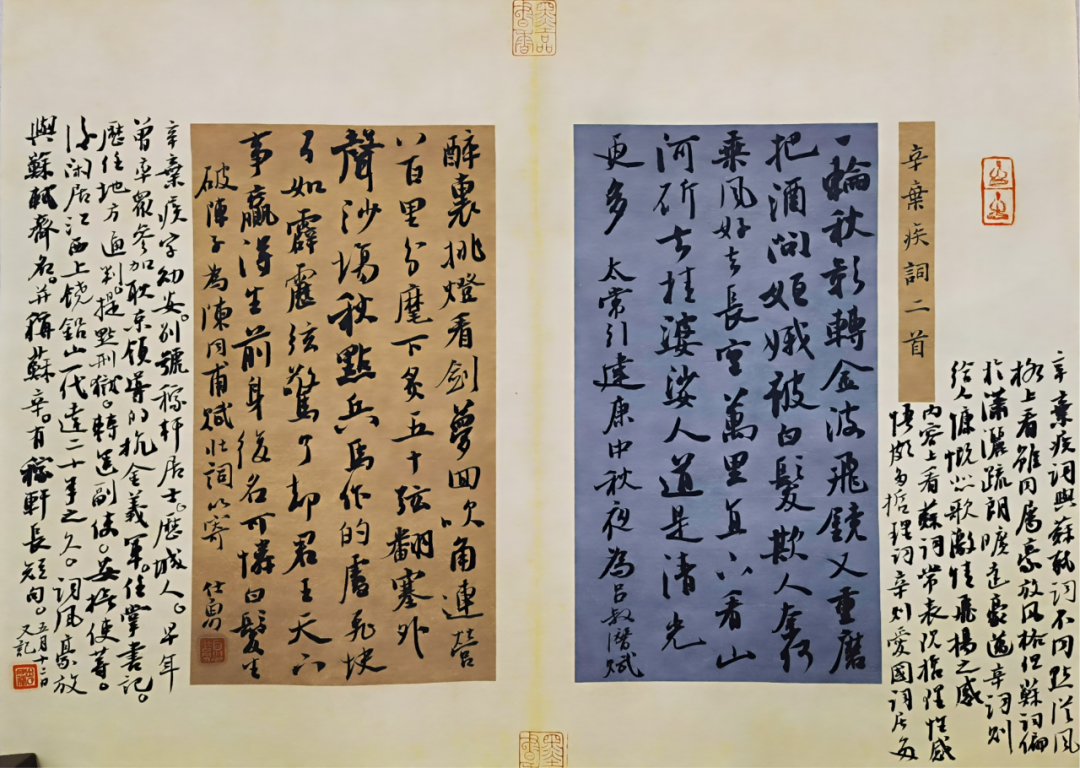 辛棄疾詞二首
辛棄疾詞與蘇軾詞不同點從風
格上看雖同屬豪放風格但蘇詞偏
於瀟灑疏朗曠達豪邁辛詞則
給人慷慨悲歌激情飛揚之感
內容上看蘇詞常表現哲理性感
悟頗多哲理詞辛則愛國詞居多
一輪秋影轉金波飛鏡又重磨
把酒問姮娥被白髮欺人奈何
乘風好去長空萬里直下看山
河斫去桂婆娑人道是清光
更多 太常引建康中秋夜為呂叔潛賦
醉裏挑燈看劍夢回吹角連營
八百里分麾下炙五十弦翻塞外
聲沙場秋點兵馬作的盧飛快
弓如霹靂弦驚了却君王天下
事贏得生前身後名可憐白髮生
破陣子為陳同甫賦壯詞以寄 仕勇
辛棄疾字幼安。别號稼軒居士。歷城人。早年
曾率眾參加耿京領導的抗金義軍。任掌書記。
歷任地方通判。提點刑獄。轉運副使。安撫使等。
後閑居江西上饒鉛山一代達二十年之久。詞風豪放
與蘇軾齊名。并稱蘇辛。有稼軒長短句。五月十二日
又記